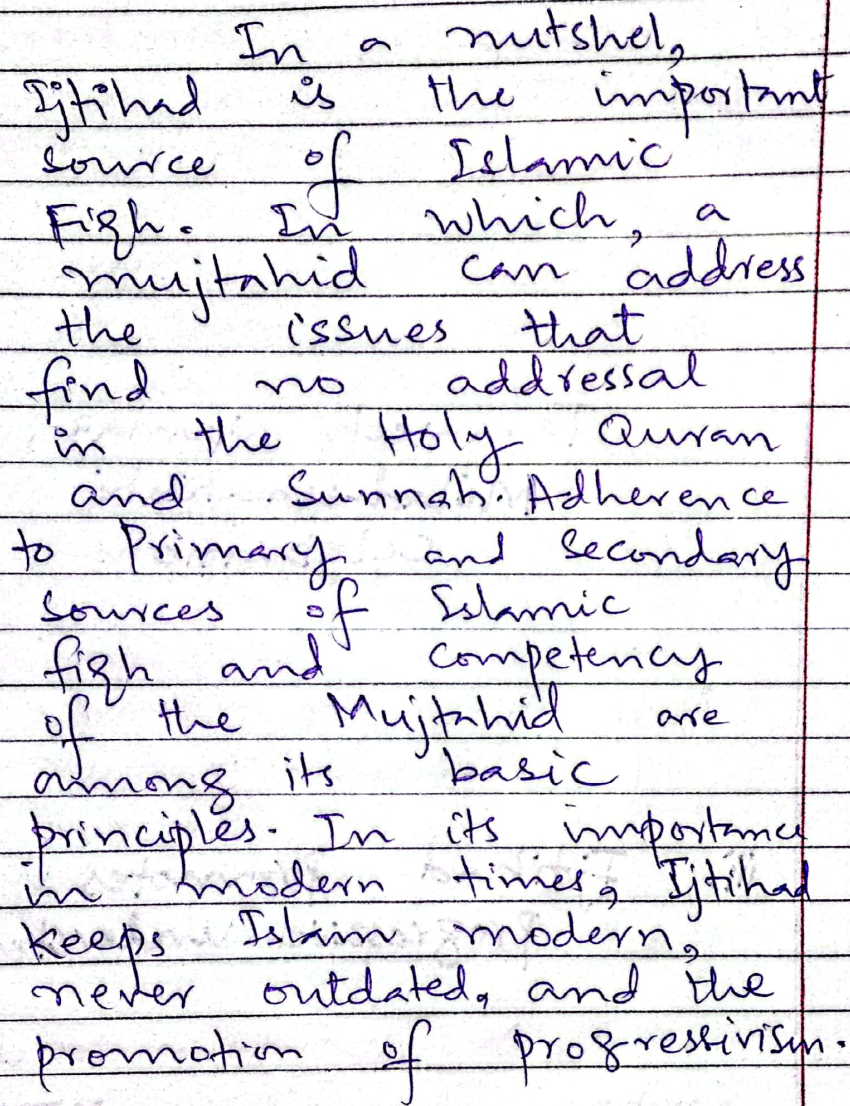 In a nutshel,
Ijtihad is the important
source of Islamic
Fiqh. In which, a
mujtahid can address
the issues that
find no addressal
in the Holy Quran
and Sunnah. Adherence
to Primary and Secondary
sources of Islamic
fiqh and competency
of the Mujtahid are
among its basic
principles. In its importance
in modern times, Ijtihad
keeps Islam modern,
never outdated, and the
promotion of progressivism.